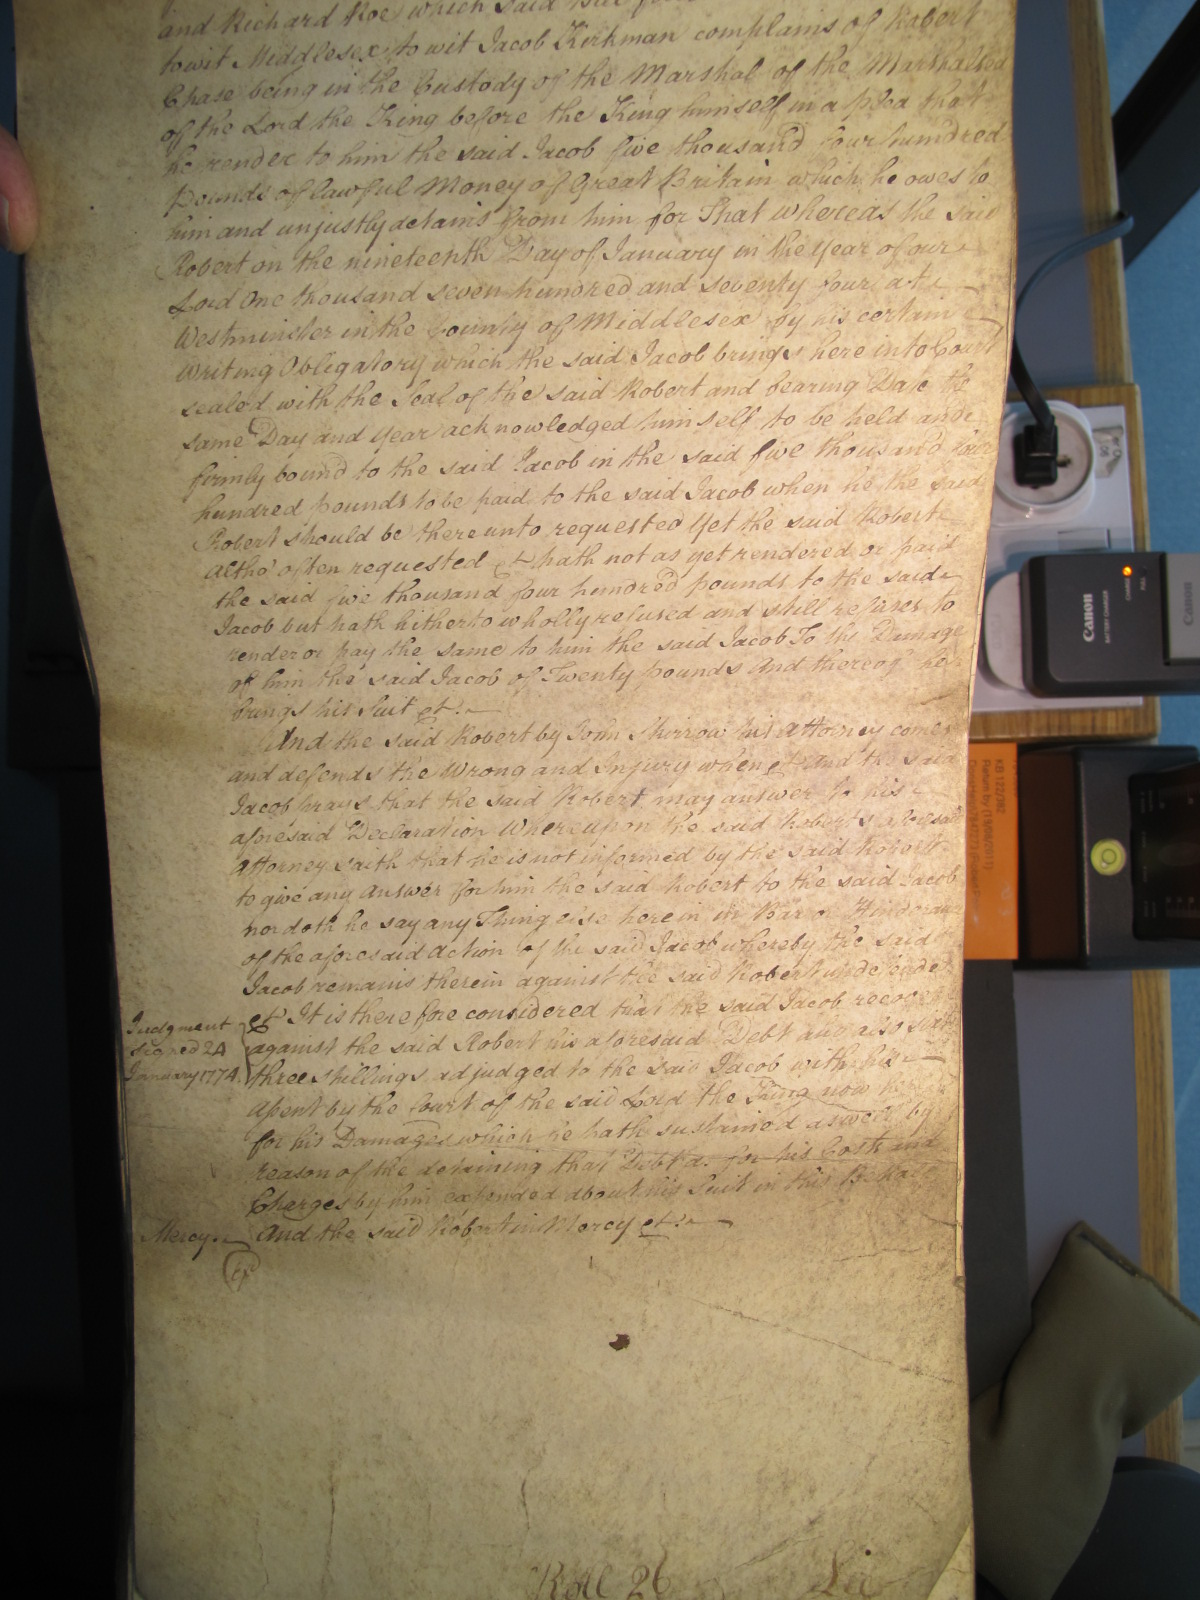 and Richard Roe which said Bill
towit Middlesex to wit Jacob Kirkman complains of Robert
Chase being in the Custody of the Marshal of the Marshalsea
of the Lord the King before the King himself in a plea that
he render to him the said Jacob five thousand four hundred
Pounds of lawful Money of Great Britain which he owes to
him and unjustly detains from him for That whereas the said
Robert on the nineteenth Day of January in the Year of our
Lord One thousand seven hundred and seventy four at
Westminster in the County of Middlesex by his certain
Writing Obligatory which the said Jacob brings here into Court
sealed with the Seal of the said Robert and bearing Date the
same Day and Year acknowledged himself to be held and
firmly bound to the said Jacob in the said five thousand four
hundred pounds to be paid to the said Jacob when he the said
Robert should be thereunto requested Yet the said Robert
altho' often requested &c hath not as yet rendered or paid
the said five thousand four hundred pounds to the said
Jacob but hath hitherto wholly refused and still refuses to
render or pay the same to him the said Jacob To the Damage
of him the said Jacob of Twenty pounds And thereof he
brings his Suit etc.
And the said Robert by John Shirrow his Attorney comes
and defends the Wrong and Injury when etc and the said
Jacob prays that the said Robert may answer to his
aforesaid Declaration Whereupon the said Robert's aforesaid
attorney saith that he is not informed by the said Robert
to give any answer for him the said Robert to the said Jacob
nor doth he say any Thing else herein in Bar or Hinderance
of the aforesaid action of the said Jacob whereby the said
Jacob remains therein against the said Robert undefended
etc It is therefore considered that the said Jacob recover
against the said Robert his aforesaid Debt and also sixty
three shillings adjudged to the said Jacob with his
Assent by the Court of the said Lord the King now here
for his Damages which he hath sustained aswell by
reason of the detaining that Debt as for his Costs and
Charges by him expended about his Suit in this Behalf
And the said Robert in Mercy etc.
Judgment
signed 24
January 1774
Mercy
Roll 26
Canon
BATTERY CHARGER
CHARGE
FULL
Canon
KB 122/392
Return by (13/09/2011)